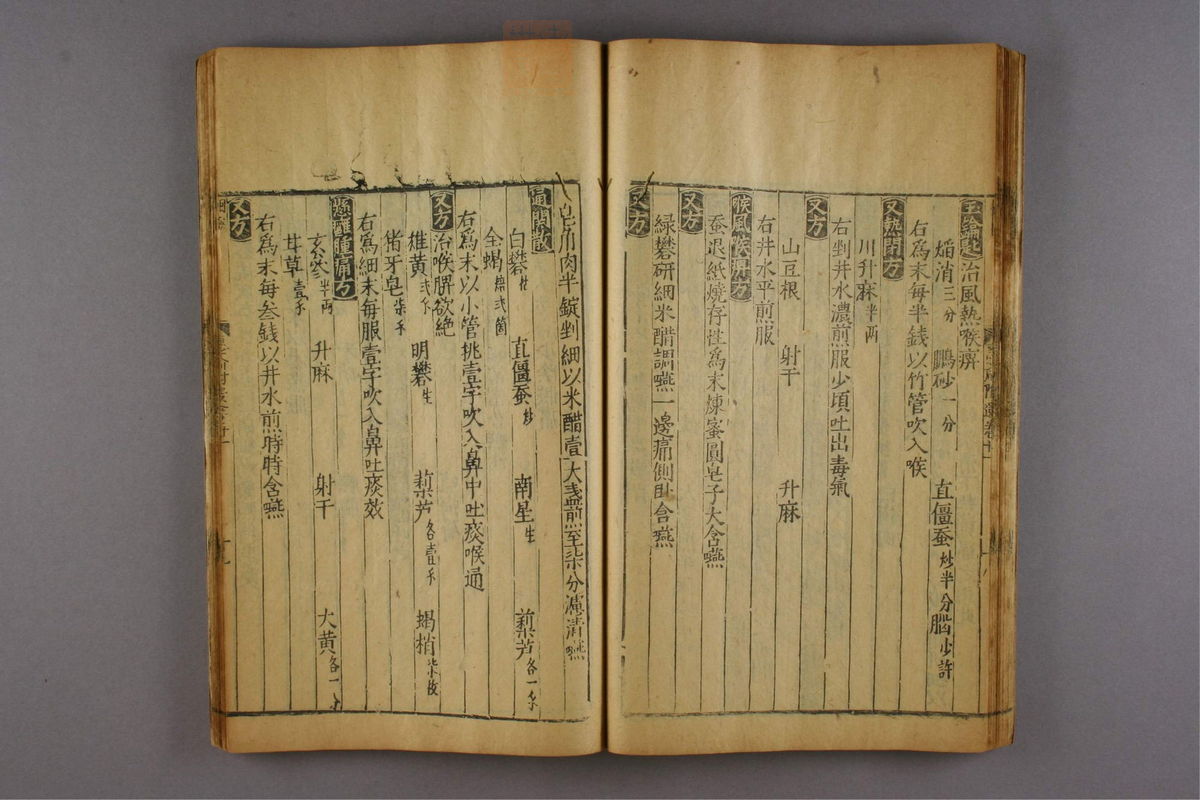 玉鑰匙治風熱喉痹
焔消三分 鵬砂一分 直僵蚕炒半分 腦少許
右爲末每半錢以竹管吹入喉
又熱閉方
川升麻半两
右剉井水濃煎服少頃吐出毒氣
又方
山豆根 射干 升麻
右井水平煎服
喉風喉痹方
蚕退紙燒存性爲末煉蜜圓皂子大含嚥
又方
緑礬研細米醋調嚥一邊痛側卧含嚥
又方
皂角肉半錠剉細以米醋壹大盞煎至柒分濾清嚥
通関散
白礬 直僵蚕炒 南星生 藜芦各一
全蝎 弐箇
右爲末以小管挑壹字吹入鼻中吐痰喉通
又方治喉脾欲絶
雄黄弐 明礬生 藜芦各壹 蝎梢柒枚
猪牙皂柒
右爲細末每服壹字吹入鼻吐痰效
懸癰腫痛方
玄參半两 升麻 射干 大黄各一
甘草壹
右爲末每叄錢以井水煎時時含嚥
又方